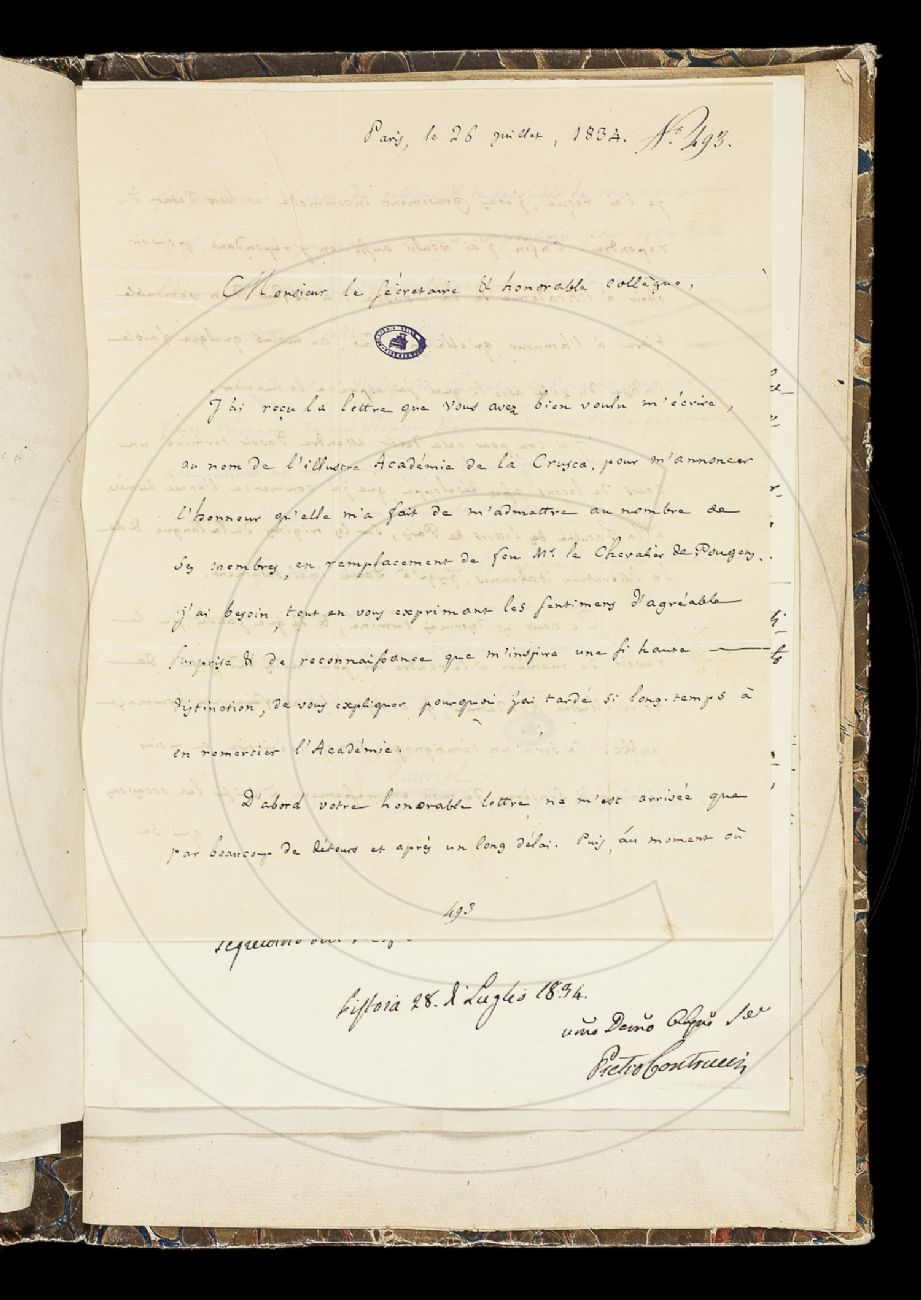 Paris, le 26 juillet, 1834. N.º 493.
Monsieur le sécretaire & honorable collègue,
J'ai reçu la lettre que vous avez bien voulu m'écrire,
au nom de l'illustre Académie de la Crusca, pour m'annoncer
l'honneur qu'elle m'a fait de m'admettre au nombre de
ses membres, en remplacement de feu Mr. le Chevalier de Pougens.
J'ai besoin, tout en vous exprimant les sentimens d'agréable
surprise & de reconnaissance que m'inspire une si haute
distinction, de vous expliquer pourquoi j'ai tardé si long-temps à
en remercier l'Académie.
D'abord votre honorable lettre ne m'est arrivée que
par beaucoup de détours et après un long délai. Puis, au moment où
493
Pistoia 28. di Luglio 1834.
Pietro Contrucci